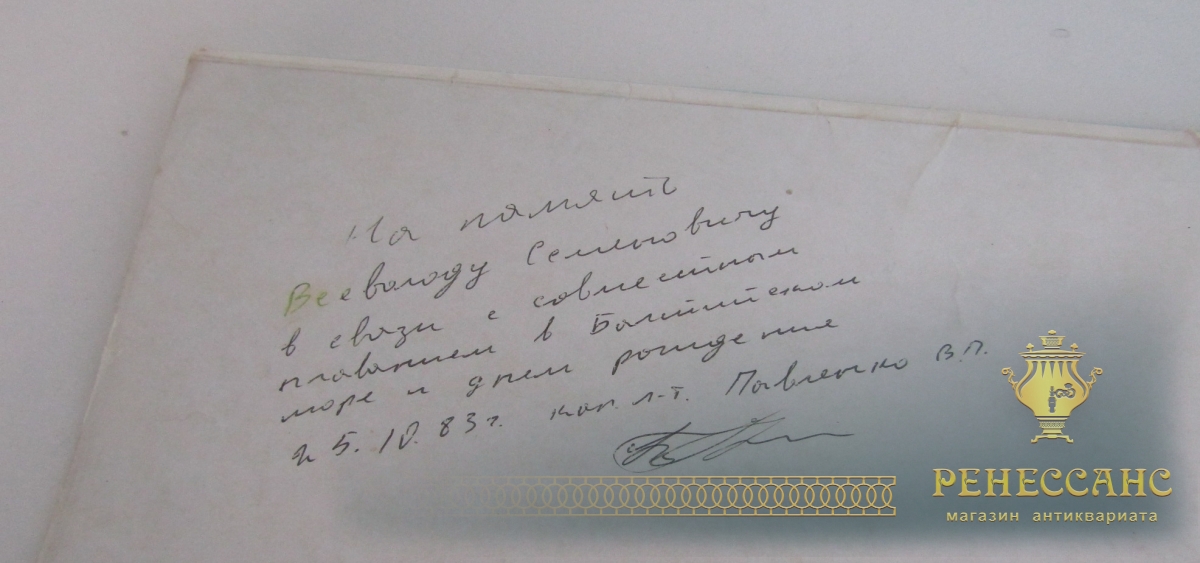 На память
Всеволоду Семеновичу
в связи с совместным
плаванием в Балтийском
море и днем рождения
25.10.83г. кап. л-т. Павленко В.П.
РЕНЕССАНС
магазин антиквариата